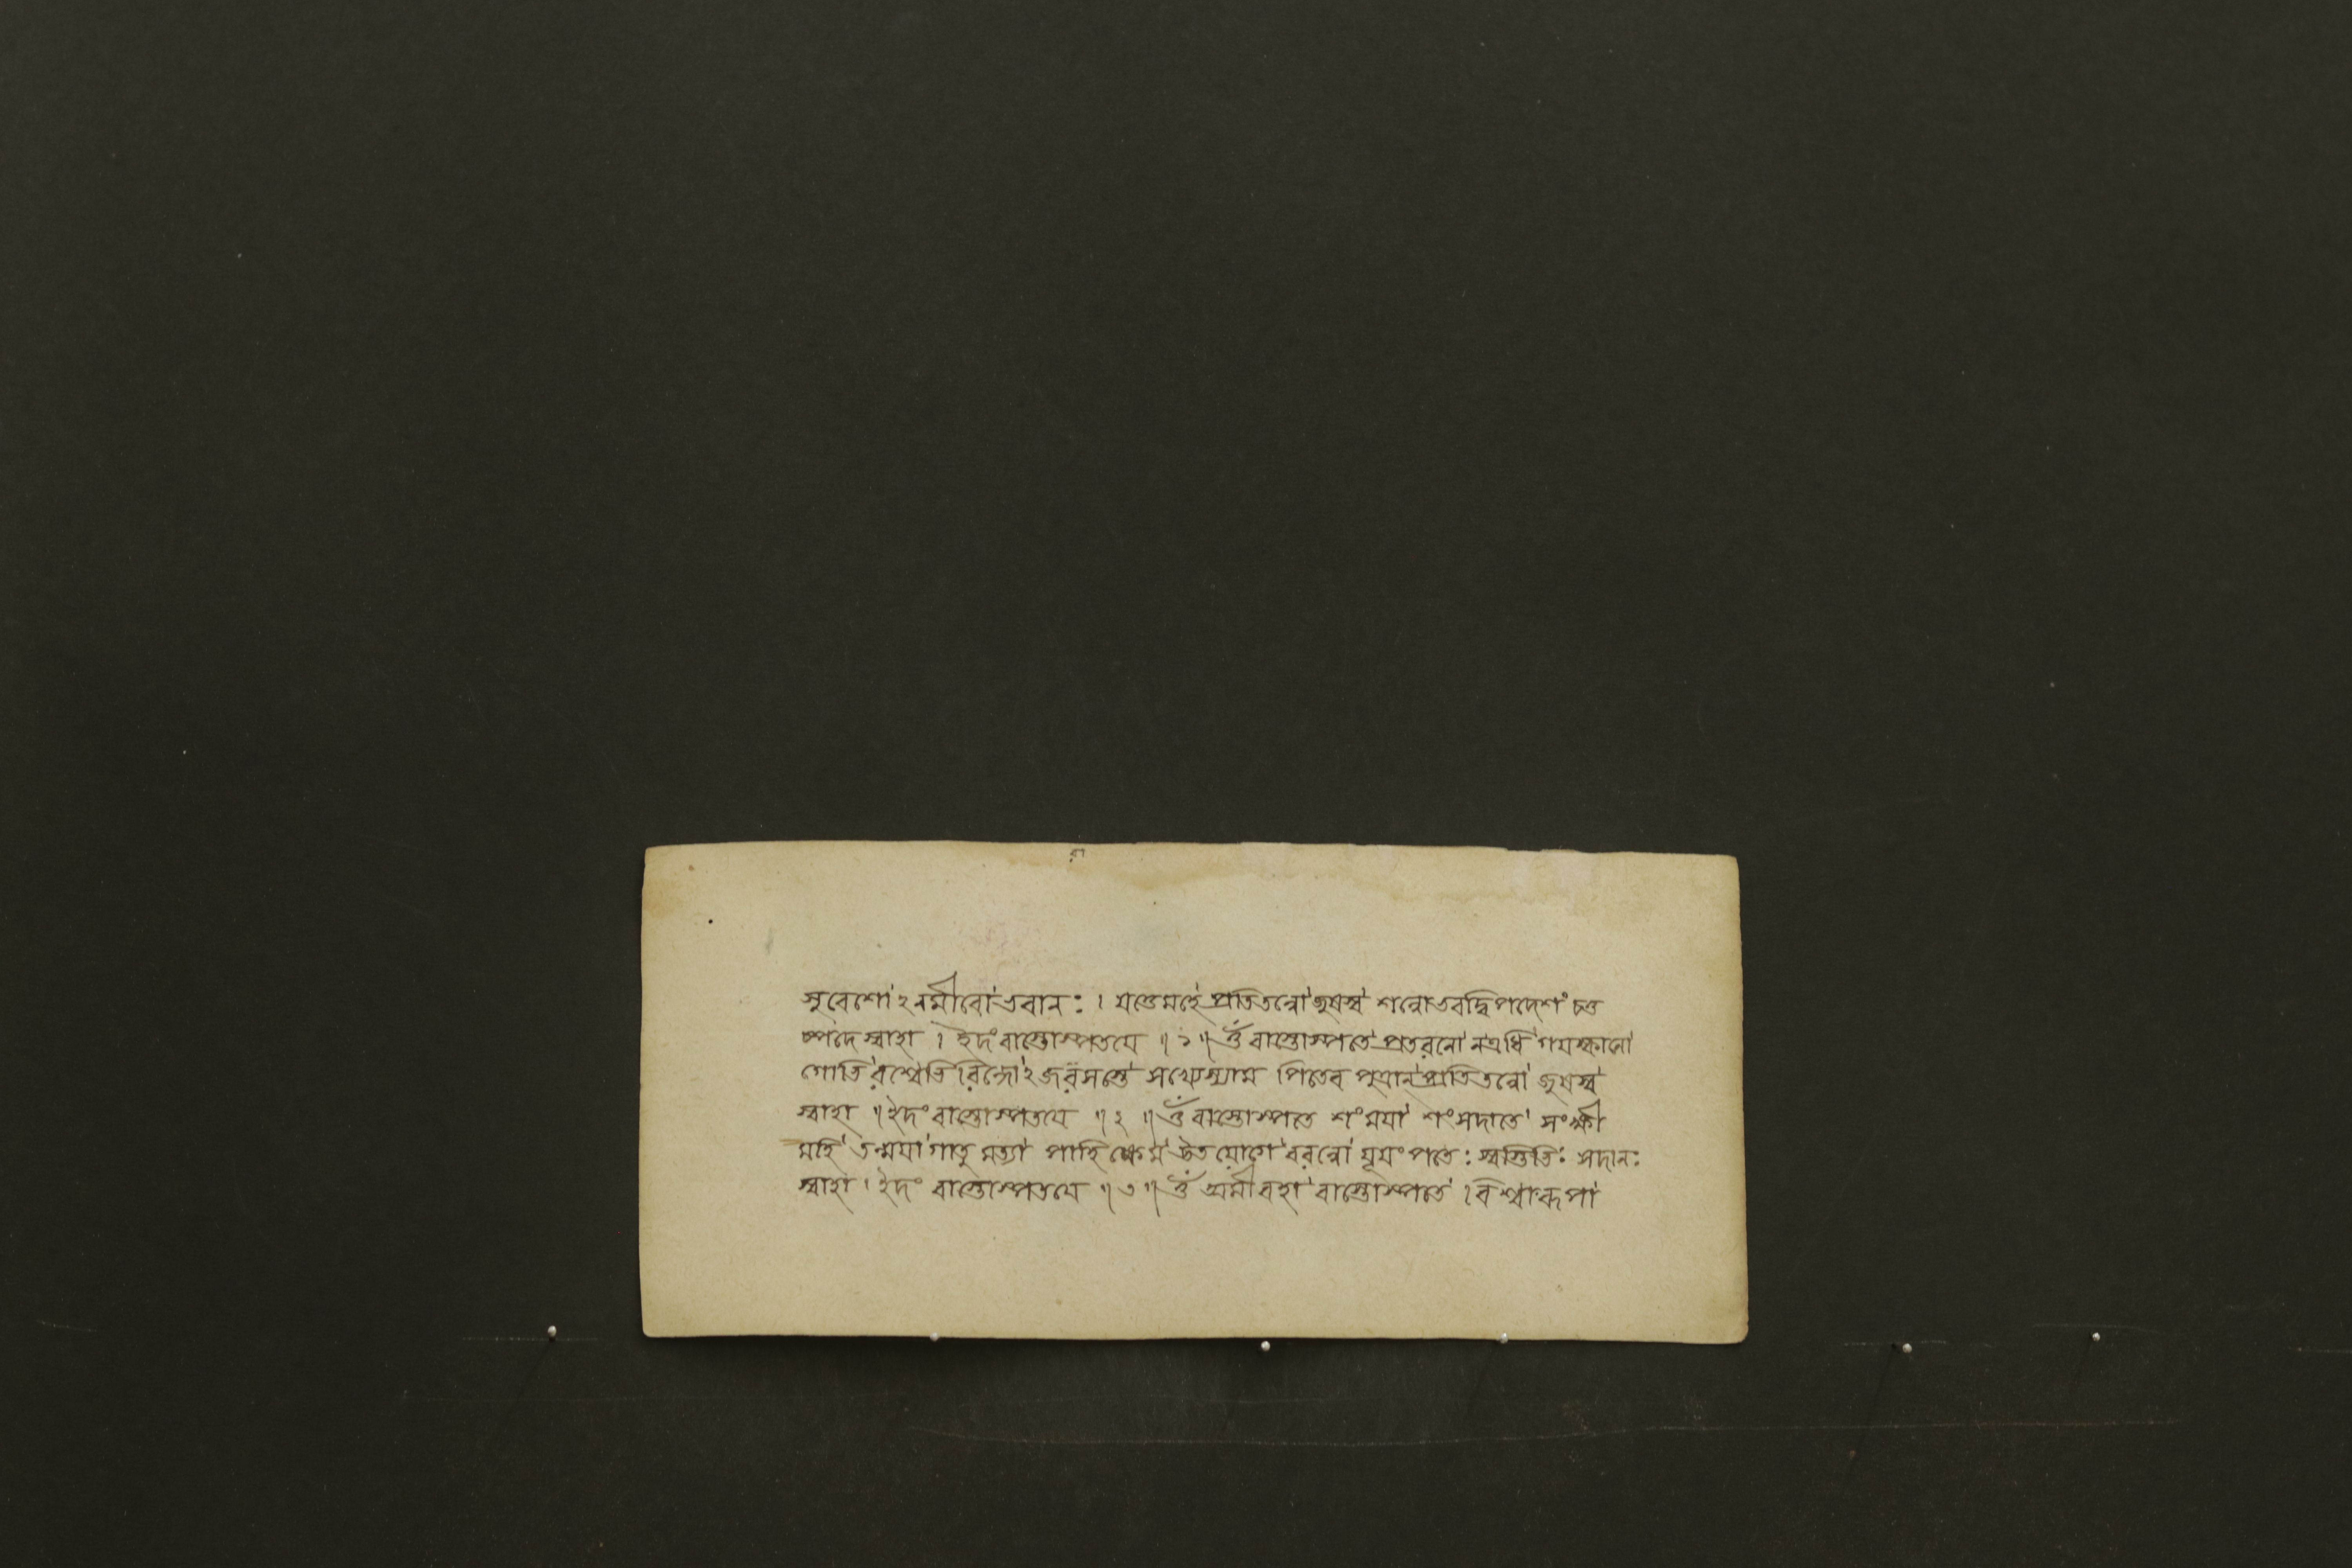 সুবেশো ২নমীবো ভবান: । যত্তেমহে প্রতিতন্নো জুষস্ব শন্নোভবদ্বিপদেশং চতু
ষ্পদে স্বাহা । ইদং বাস্তোস্পতয়ে ॥ ১ ॥ ওঁ বাস্তোস্পতে প্রতরনো নএধি গযস্ফানো
গোভিরশ্বেভিরিন্দো ২জরসস্তে সখ্যেস্যাম পিতেব পুত্রান্প্রতিতন্নো জুষস্ব
স্বাহা ॥ ইদং বাস্তোস্পতয়ে ॥ ২ ॥ ওঁ বাস্তোস্পতে শংময়া শংসদাতে সংক্ষী
মহি তন্ময়া গাতু মত্যা পাহি ক্ষেম উত যোগে বরন্নো যূযং পাত: স্বস্তিভি: সদান:
স্বাহা । ইদং বাস্তোস্পতয়ে ॥ ৩ ॥ ওঁ অমীবহা বাস্তোস্পতে । বিশ্বারূপা